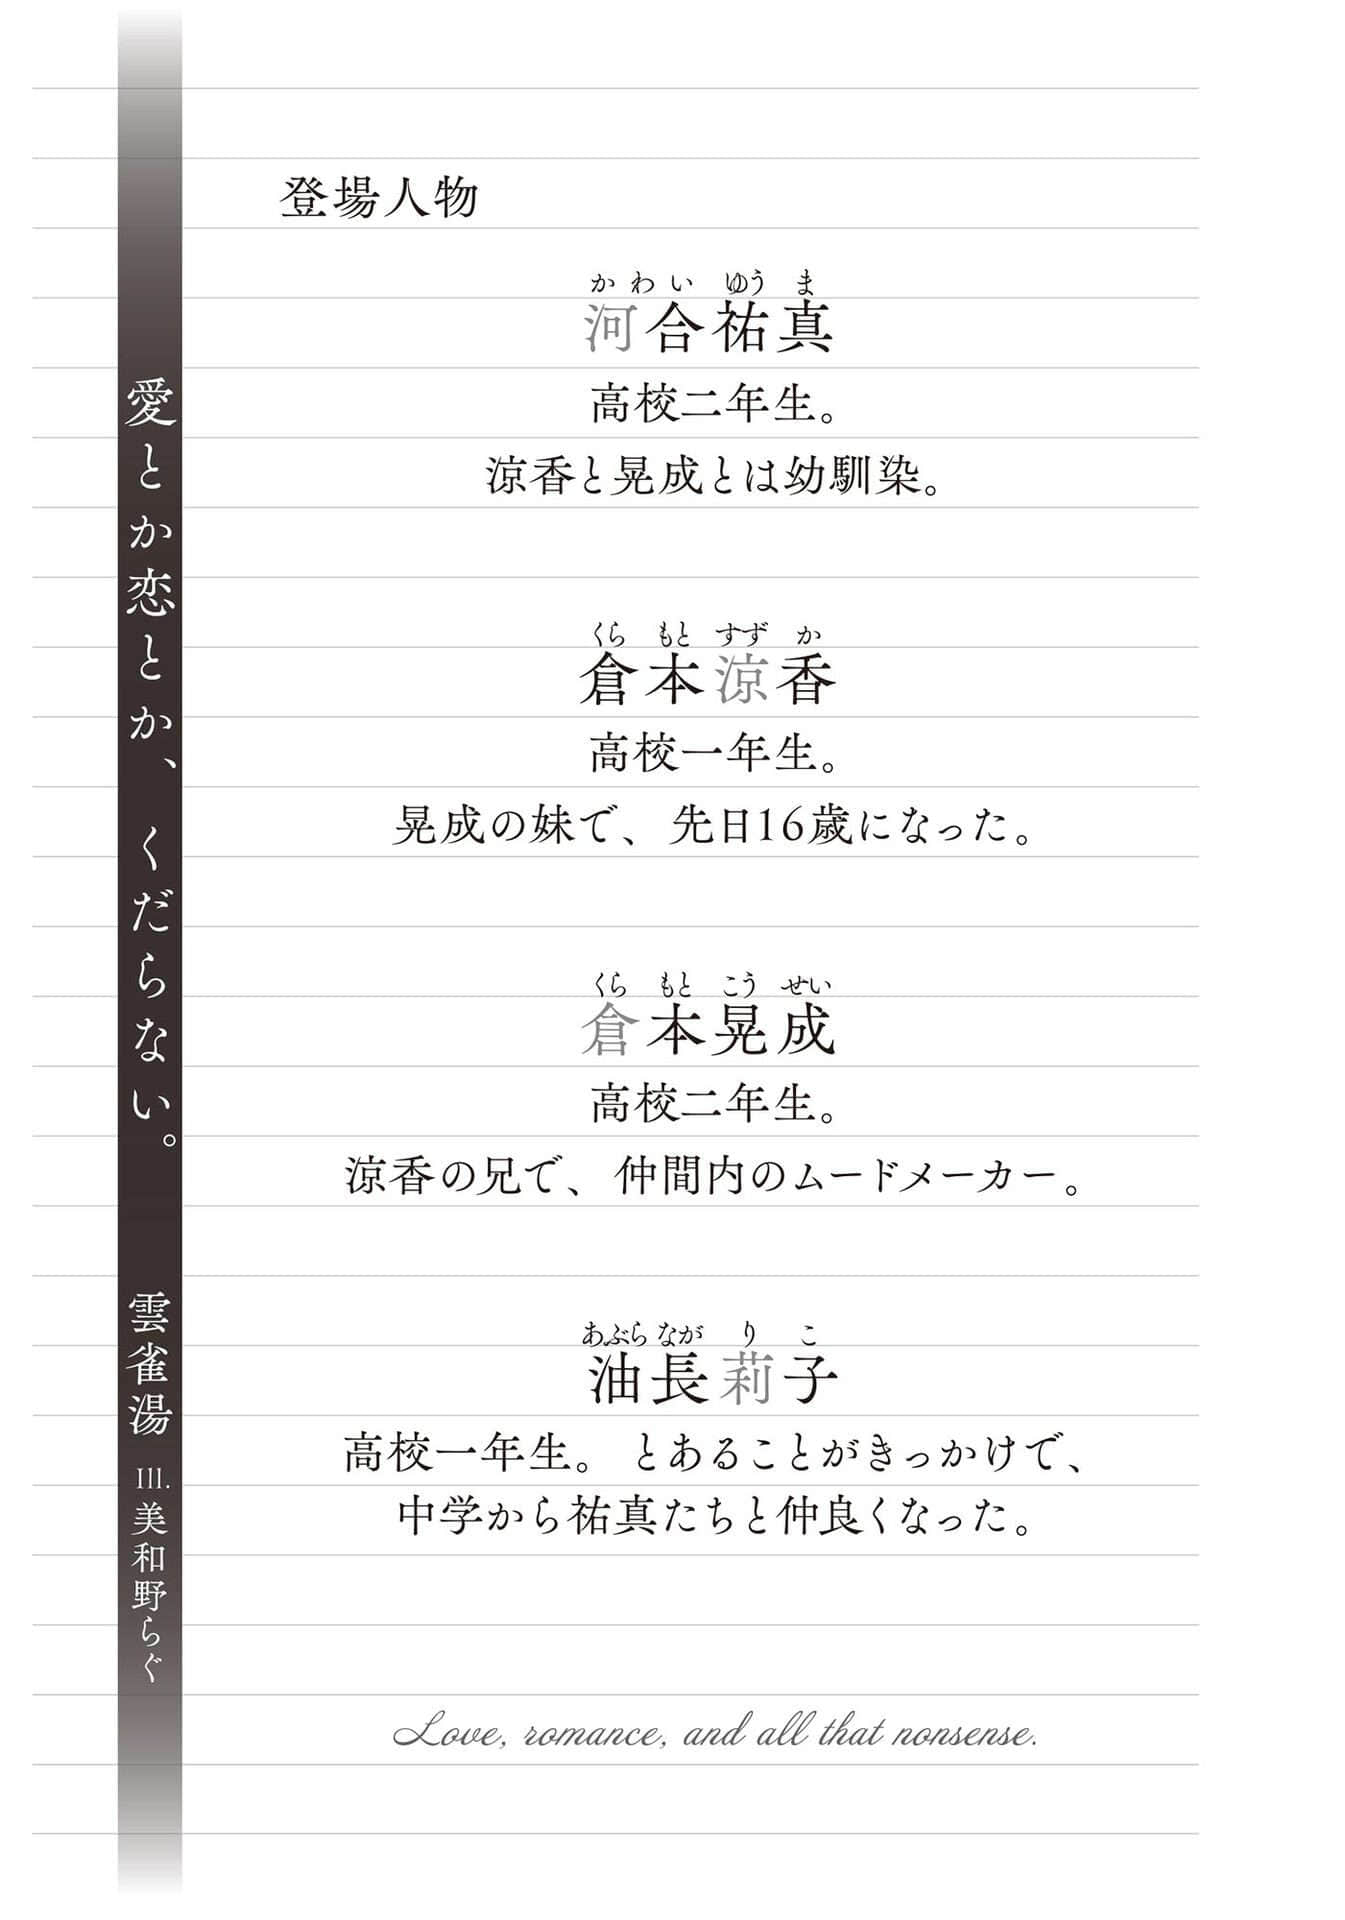 登場人物
かわい ゆうま
河合祐真
高校二年生。
涼香と晃成とは幼馴染。
くらもと すずか
倉本涼香
高校一年生。
晃成の妹で、先日16歳になった。
くらもと こうせい
倉本晃成
高校二年生。
涼香の兄で、仲間内のムードメーカー。
あぶらなが りこ
油長莉子
高校一年生。とあることがきっかけで、
中学から祐真たちと仲良くなった。
Love, romance, and all that nonsense.
愛とか恋とか、くだらない。
雲雀湯
Ill. 美和野らぐ